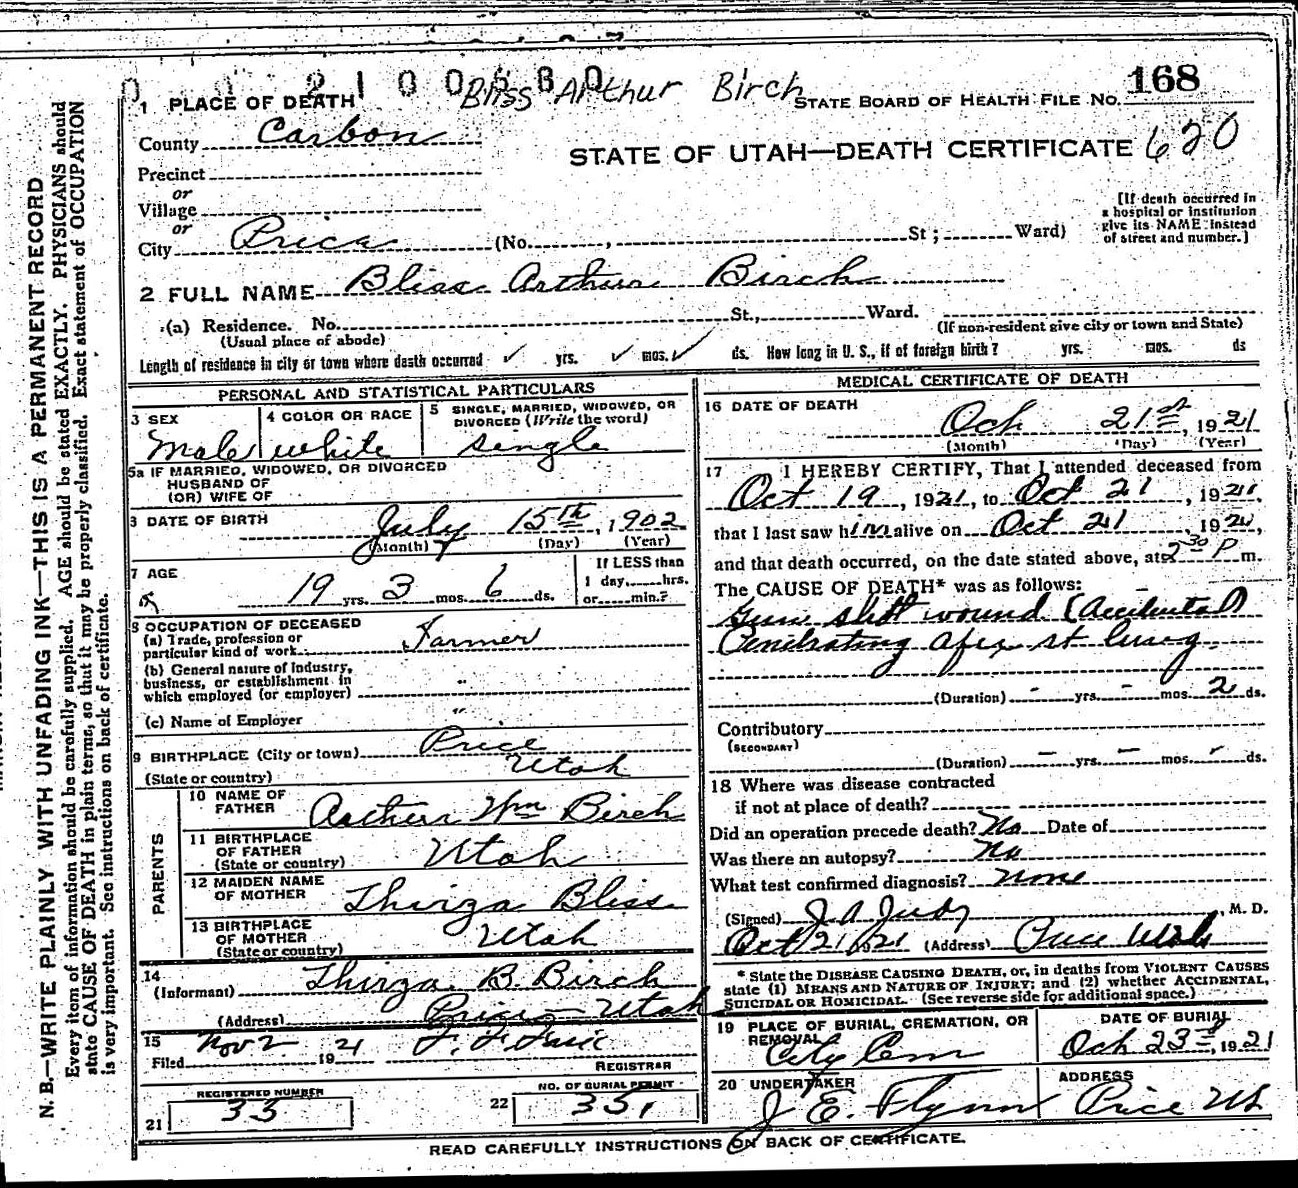 0 0 2 1 0 0 6 8 0 Bliss Arthur Birch
1 PLACE OF DEATH STATE BOARD OF HEALTH FILE NO. 168
County Carbon
STATE OF UTAH—DEATH CERTIFICATE 620
Precinct
or
Village
or
City Price (No. , St ; Ward)
[If death occurred in
a hospital or institution
give its NAME instead
of street and number.]
2 FULL NAME Bliss Arthur Birch
(a) Residence. No. St., Ward.
(Usual place of abode) (If non-resident give city or town and State)
Length of residence in city or town where death occurred ✓ yrs. ✓ mos. ✓ ds. How long in U. S., if of foreign birth? yrs. mos. ds
PERSONAL AND STATISTICAL PARTICULARS
3 SEX 4 COLOR OR RACE 5 SINGLE, MARRIED, WIDOWED, OR
DIVORCED (Write the word)
Male white single
5a IF MARRIED, WIDOWED, OR DIVORCED
HUSBAND OF
(OR) WIFE OF
DATE OF BIRTH July 15th, 1902
(Month) (Day) (Year)
7 AGE If LESS than
19 yrs. 3 mos. 6 ds. 1 day, hrs.
or min.?
8 OCCUPATION OF DECEASED
(a) Trade, profession or
particular kind of work Farmer
(b) General nature of industry,
business, or establishment in
which employed (or employer) "
(c) Name of Employer "
9 BIRTHPLACE (City or town) Price
(State or country) Utah
PARENTS
10 NAME OF
FATHER Arthur Wm Birch
11 BIRTHPLACE
OF FATHER
(State or country) Utah
12 MAIDEN NAME
OF MOTHER Thirza Bliss
13 BIRTHPLACE
OF MOTHER
(State or country) Utah
14
(Informant) Thirza B. Birch
(Address) Price Utah
15
Filed Nov 2 1921
REGISTRAR
REGISTERED NUMBER
21 33
NO. OF BURIAL PERMIT
22 351
MEDICAL CERTIFICATE OF DEATH
16 DATE OF DEATH
Oct 21st, 1921
(Month) (Day) (Year)
17 I HEREBY CERTIFY, That I attended deceased from
Oct 19, 1921, to Oct 21, 1921,
that I last saw him alive on Oct 21, 1921,
and that death occurred, on the date stated above, at 2 30 P m.
The CAUSE OF DEATH* was as follows:
Gun shot wound (Accidental)
Penetrating apex lung.
(Duration) - yrs. - mos 2 ds.
Contributory
(SECONDARY)
(Duration) - yrs. - mos. - ds.
18 Where was disease contracted
if not at place of death?
Did an operation precede death? No Date of
Was there an autopsy? No
What test confirmed diagnosis? None
(Signed) J A Judy, M. D.
Oct 21 1921 (Address) Price Utah
* State the DISEASE CAUSING DEATH, or, in deaths from VIOLENT CAUSES
state (1) MEANS AND NATURE OF INJURY; and (2) whether ACCIDENTAL,
SUICIDAL OR HOMICIDAL. (See reverse side for additional space.)
19 PLACE OF BURIAL, CREMATION, OR
REMOVAL City Cem
DATE OF BURIAL
Oct 23rd, 1921
20 UNDERTAKER
J E. Flynn
ADDRESS
Price Ut
READ CAREFULLY INSTRUCTIONS ON BACK OF CERTIFICATE.
N. B.—WRITE PLAINLY WITH UNFADING INK—THIS IS A PERMANENT RECORD
Every item of information should be carefully supplied. AGE should be stated EXACTLY. PHYSICIANS should
state CAUSE OF DEATH in plain terms, so that it may be properly classified. Exact statement of OCCUPATION
is very important. See instructions on back of certificate.